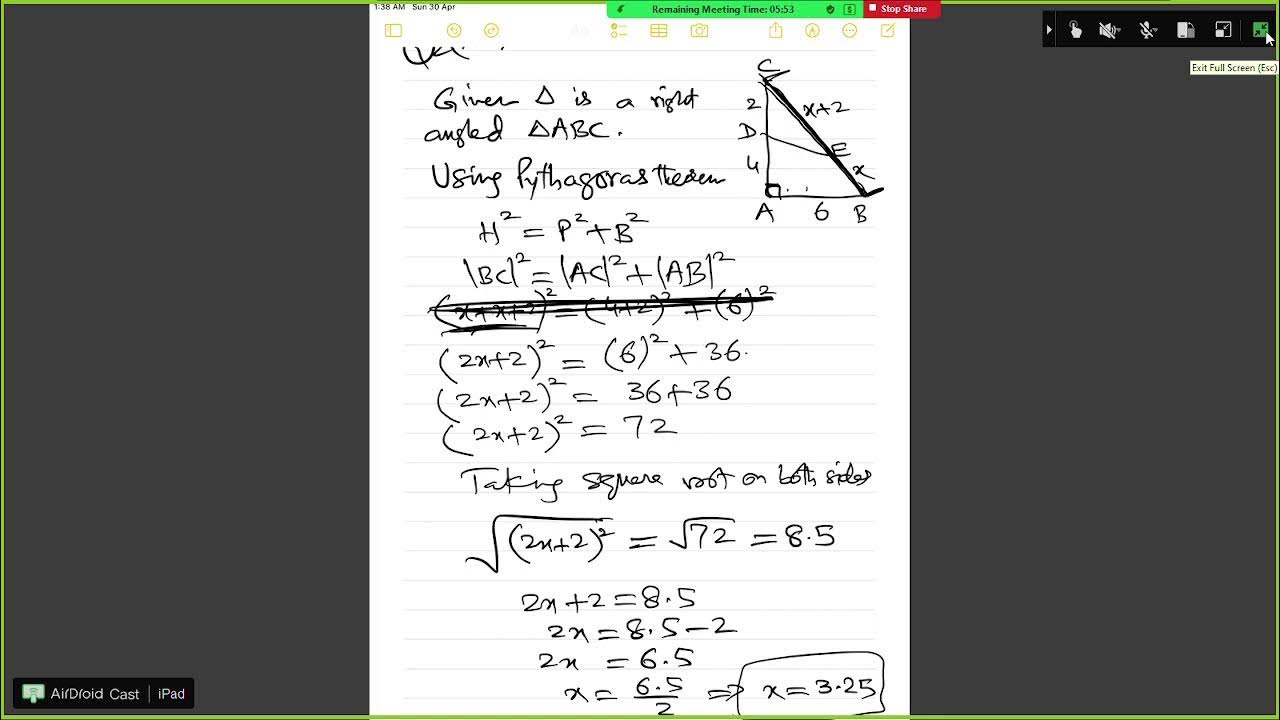 1:38 AM Sun 30 Apr
Remaining Meeting Time: 05:53
Stop Share
Exit Full Screen (Esc)
Given Δ is a right
angled ΔABC.
Using Pythagoras theorem
H² = P² + B²
|BC|² = |AC|² + |AB|²
(x+x+2)² = (4+2)² + (6)²
(2x+2)² = (6)² + 36.
(2x+2)² = 36+36
(2x+2)² = 72
Taking square root on both sides
√(2x+2)² = √72 = 8.5
2x+2 = 8.5
2x = 8.5-2
2x = 6.5
x = 6.5/2 ⇒ x = 3.25
C
2
x+2
D
E
4
x
A
6
B
AirDroid Cast | iPad